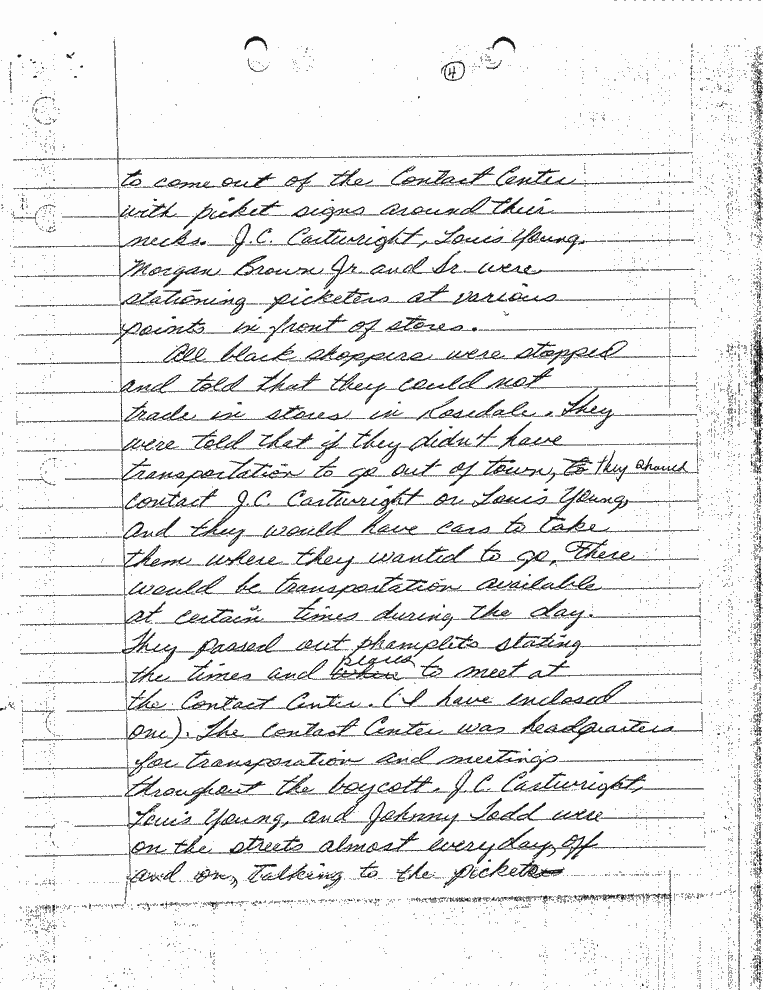 4
to come out of the Contact Center
with picket signs around their
necks. J.C. Cartwright, Louis Young,
Morgan Brown Jr. and Sr. were
stationing picketers at various
points in front of stores.
All black shoppers were stopped
and told that they could not
trade in stores in Rosedale. They
were told that if they didn't have
transportation to go out of town, to they should
contact J.C. Cartwright or Louis Young,
and they would have cars to take
them where they wanted to go. There
would be transportation available
at certain times during the day.
They passed out phamplets stating
the times and where places to meet at
the Contact Center. (I have enclosed
one). The Contact Center was headquarters
for transporation and meetings
throughout the boycott. J.C. Cartwright,
Louis Young, and Johnny Todd were
on the streets almost everyday, off
and on, talking to the pickets